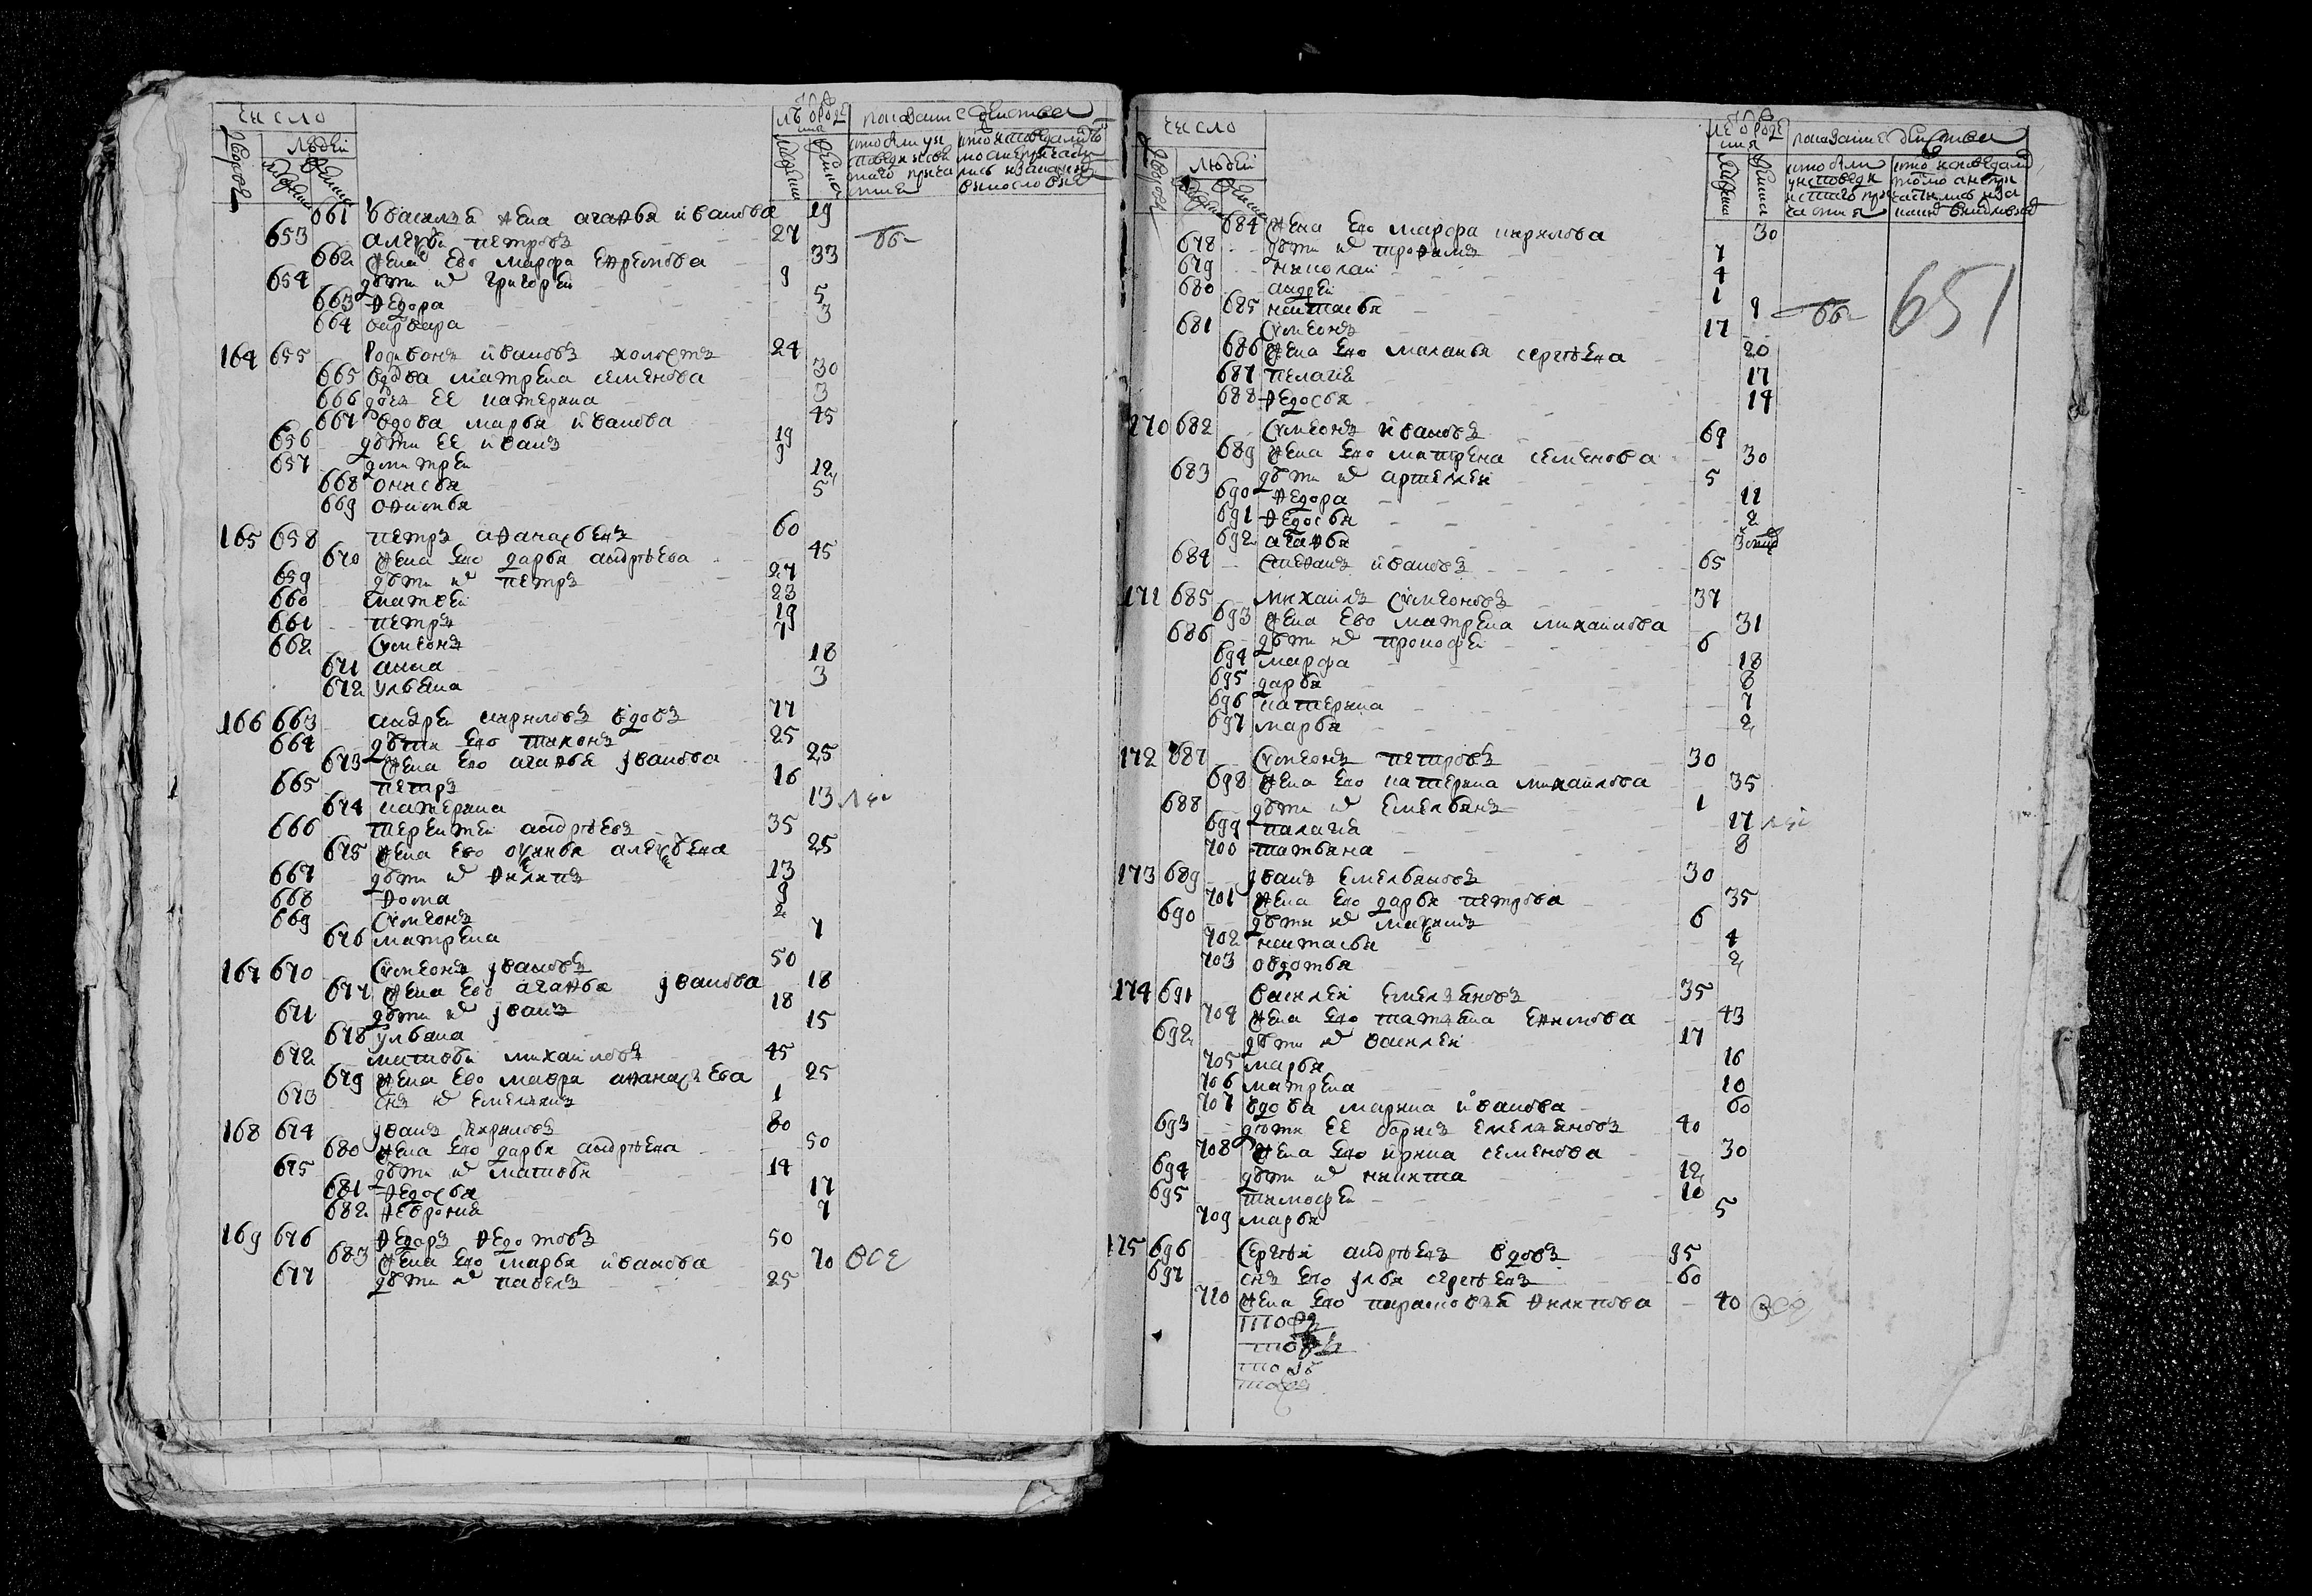 число
людей
661 васильева жена агафья иванова 19
653 алексей петровъ 27
662 жена ево марфа ефремова 33
654 дети их григорей 9
663 федора 5
664 варвара 3
164 655 Родивонъ ивановъ холостъ 24
665 вдова матрена семенова 30
666 дочь ее катерина 3
667 вдова марья иванова 45
656 дети ее иванъ 19
657 дмитрей 9
668 онисья 12
669 офимья 5
165 658 петръ афанасьевъ 60
670 жена ево дарья андреева 45
659 дети их петръ 27
660 матвей 23
661 петръ 19
662 Сѵмеонъ 7
671 анна 18
672 ульяна 3
166 663 андрей кириловъ вдовъ 77
664 дети ево тихонъ 25
673 жена ево агафья јванова 25
665 петръ 16
674 катерина 13
666 терентей андреевъ 35
675 жена ево алексеева 25
667 дети их филипъ 13
668 фома 9
669 Сѵмеонъ 2
676 матрена 7
167 670 Сѵмеонъ јвановъ 50
677 жена ево агафья јванова 18
671 дети их јванъ 18
678 ульяна 15
672 матвей михайловъ 45
679 жена ево мавра афанасьева 25
673 снъ их емельянъ 1
168 674 јванъ кириловъ 80
680 жена ево дарья андреева 50
675 дети их матвей 14
681 федосья 17
682 феврония 7
169 676 федоръ федотовъ 50
683 жена ево марья иванова 70 все
677 дети их павелъ 25
число
людей
684 жена ево марфа кирилова 30
678 дети их трофимъ 7
679 николай 4
680 андрей 1
685 настасья 9
651
681 Сѵмеонъ 17
686 жена ево маланья сергеева 20
687 пелагея 17
688 федосья 14
170 682 Сѵмеонъ ивановъ 69
689 жена ево матрена семенова 30
683 дети их артемей 5
690 федора 11
691 федосья 2
692 агафья
684 степанъ ивановъ 65
171 685 михайлъ Сѵмеоновъ 37
693 жена ево матрена михайлова 31
686 дети их прокофей 6
694 марфа 18
695 дарья 8
696 катерина 7
697 марья 2
172 687 Сѵмеонъ петровъ 30
698 жена ево катерина михайлова 35
688 дети их емельянъ 1
699 палагея 17
700 татьяна 8
173 689 јванъ емельяновъ 30
701 жена ево дарья петрова 35
690 дети их 6
702 настасья 4
703 овдотья 2
174 691 василей емельяновъ 35
704 жена ево татьяна ефимова 43
692 дети их василей 17
705 марья 16
706 матрена 10
707 вдова марина иванова 60
693 дети ее борисъ емельяновъ 40
708 жена ево ирина семенова 30
694 дети их никита 12
695 тимофей 10
709 марья 5
175 696 Сергей андреевъ вдовъ 95
697 снъ ево улья сергеевъ 60
710 жена ево парасковья филипова 40 все